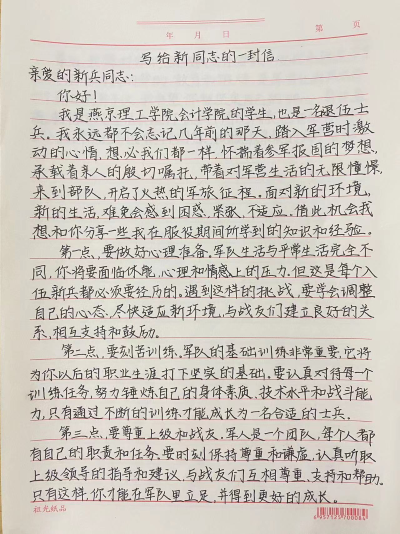 年 月 日 第 页
写给新同志的一封信
亲爱的新兵同志:
你好!
我是燕京理工学院会计学院的学生,也是一名退伍士
兵。我永远都不会忘记几年前的那天,踏入军营时激
动的心情,想必我们都一样,怀揣着参军报国的梦想,
承载着亲人的殷切嘱托,带着对军营生活的无限憧憬,
来到部队,开启了火热的军旅征程。面对新的环境,
新的生活,难免会感到困惑、紧张、不适应,借此机会我
想和你分享一些我在服役期间所学到的知识和经验。
第一点,要做好心理准备。军队生活与平常生活完全不
同,你将要面临体能、心理和情感上的压力,但这是每个入
伍新兵都必须要经历的。遇到这样的挑战,要学会调整
自己的心态,尽快适应新环境,与战友们建立良好的关
系,相互支持和鼓励。
第二点,要刻苦训练。军队的基础训练非常重要,它将
为你以后的职业生涯打下坚实的基础。要认真对待每个
训练任务,努力锤炼自己的身体素质、技术水平和战斗能
力,只有通过不断的训练才能成长为一名合适的士兵。
第三点,要尊重上级和战友。军人是一个团队,每个人都
有自己的职责和任务。要时刻保持尊重和谦虚,认真听取
上级领导的指导和建议,与战友们互相尊重、支持和帮助。
只有这样,你才能在军队里立足,并得到更好的成长。
祖光纸品